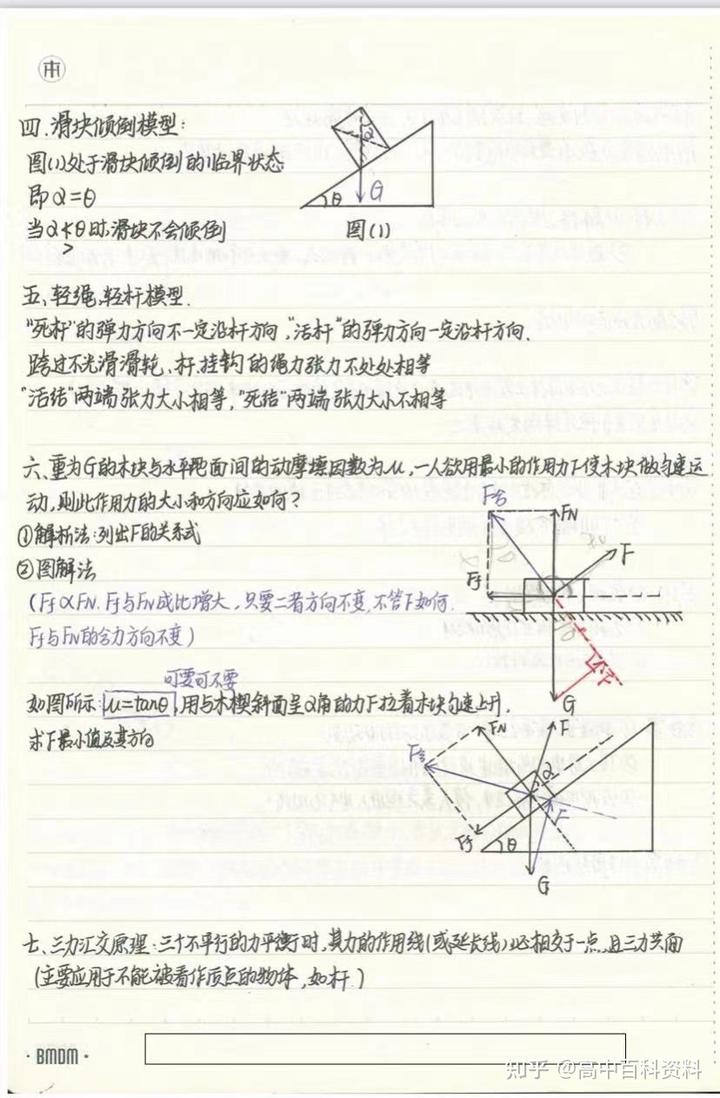 四.滑块倾倒模型:
图(1)处于滑块倾倒的临界状态
即α=θ
当α<θ时滑块不会倾倒
>
α
θ
G
图(1)
五、轻绳,轻杆模型.
"死杆"的弹力方向不一定沿杆方向,"活杆"的弹力方向一定沿杆方向.
跨过不光滑滑轮、杆、挂钩的绳力张力不处处相等
"活结"两端张力大小相等,"死结"两端张力大小不相等
六、重为G的木块与水平地面间的动摩擦因数为μ,一人欲用最小的作用力F使木块做匀速运
动,则此作用力的大小和方向应如何?
①解析法:列出F的关系式
②图解法
(Ff∝FN.Ff与FN成比增大,只要二者方向不变,不管F如何,
Ff与FN的合力方向不变)
F合
FN
F
Ff
G
可要可不要
如图所示,μ=tanθ,用与木楔斜面呈α角的力F拉着木块匀速上升,
求F最小值及其方向
F合
FN
F
α
Ff
θ
F
G
七、三力汇交原理:三个不平行的力平衡时,其力的作用线(或延长线)必相交于一点,且三力共面
(主要应用于不能被看作质点的物体,如杆)
·BMDM·
知乎 @高中百科资料